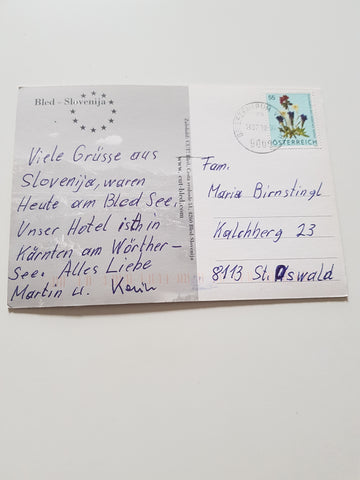 Bled - Slovenija
Viele Grüsse aus
Slovenija, waren
Heute am Bled See.
Unser Hotel ist in
Kärnten am Wörther-
See. Alles Liebe
Martin u. Karin
www.cut-bled.com
55
ÖSTERREICH
Fam.
Maria Birnstingl
Kalchberg 23
8113 St. Oswald